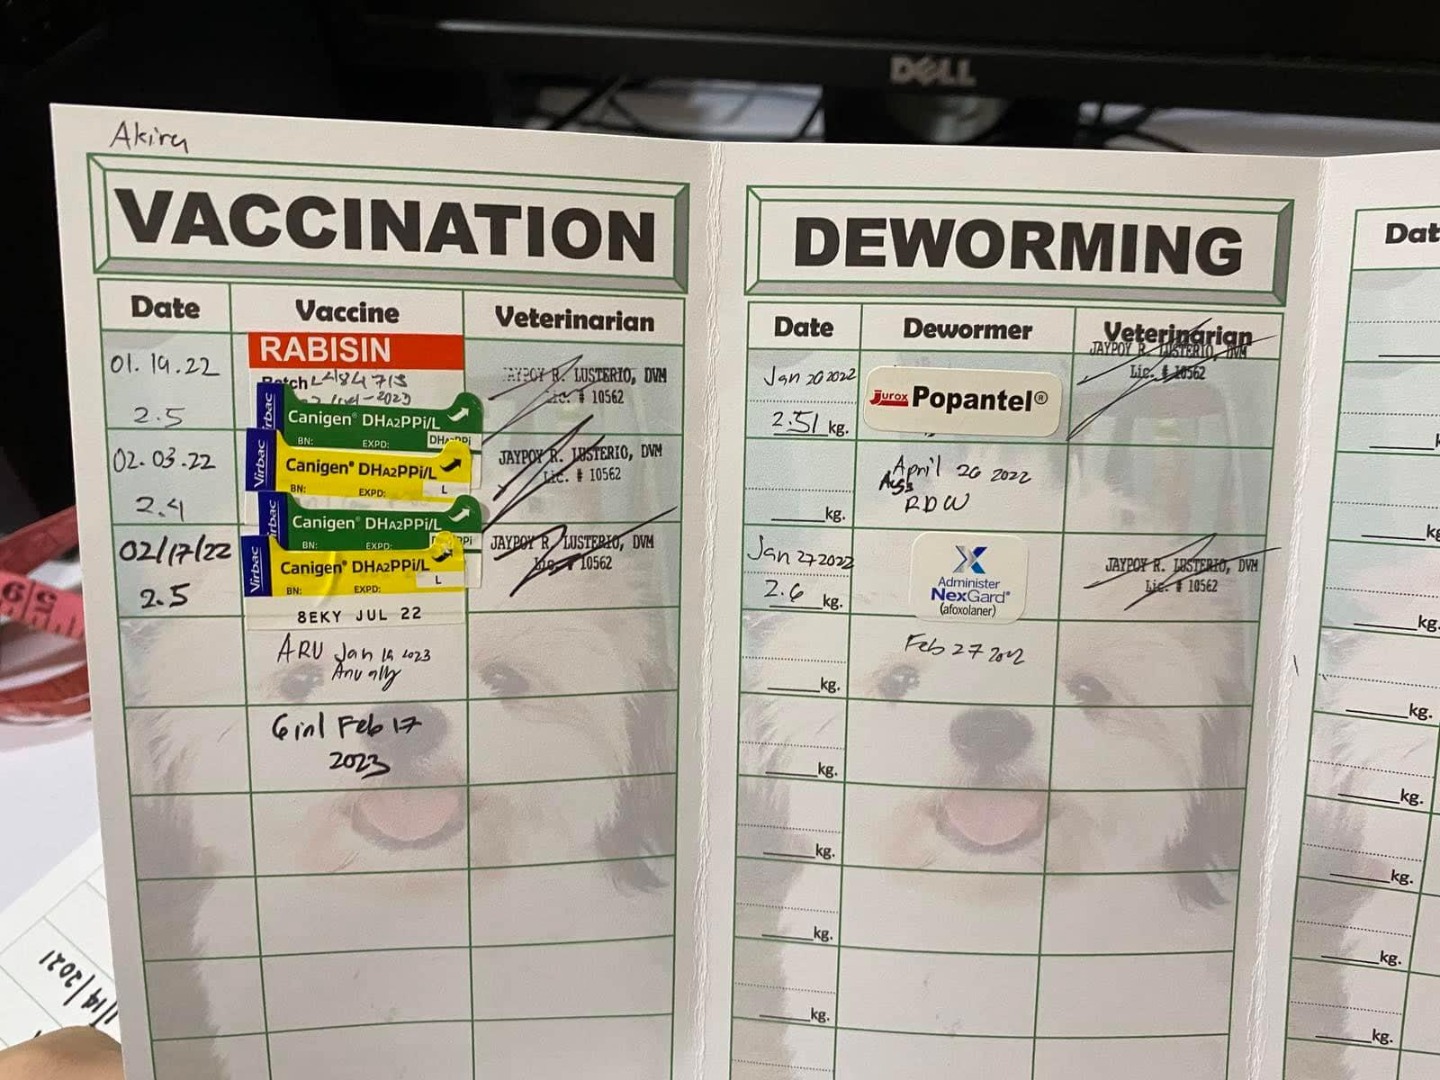 DELL
Akira
VACCINATION
Date Vaccine Veterinarian
01.19.22 RABISIN
Batch
2.5 JAYPOY R. LUSTERIO, DVM
Lic. # 10562
Virbac Canigen® DHA2PPi/L
BN: EXPD: DHA2PPi
02.03.22 Virbac Canigen® DHA2PPi/L
BN: EXPD: L
2.4 JAYPOY R. LUSTERIO, DVM
Lic. # 10562
Virbac Canigen® DHA2PPi/L
BN: EXPD:
02/17/22 Virbac Canigen® DHA2PPi/L
BN: EXPD: L
2.5 JAYPOY R. LUSTERIO, DVM
Lic. # 10562
8EKY JUL 22
ARV Jan 19 2023
Anually
6in1 Feb 17
2023
DEWORMING
Date Dewormer Veterinarian
Jan 20 2022 Jurox Popantel® JAYPOY R. LUSTERIO, DVM
2.51 kg. Lic. # 10562
April 20 2022
RDW
kg.
Jan 27 2022 X JAYPOY R. LUSTERIO, DVM
2.6 kg. Administer Lic. # 10562
NexGard®
(afoxolaner)
Feb 27 2022
kg.
kg.
kg.
kg.
kg.
Dat
kg.
kg.
kg.
kg.
kg.
kg.
kg.